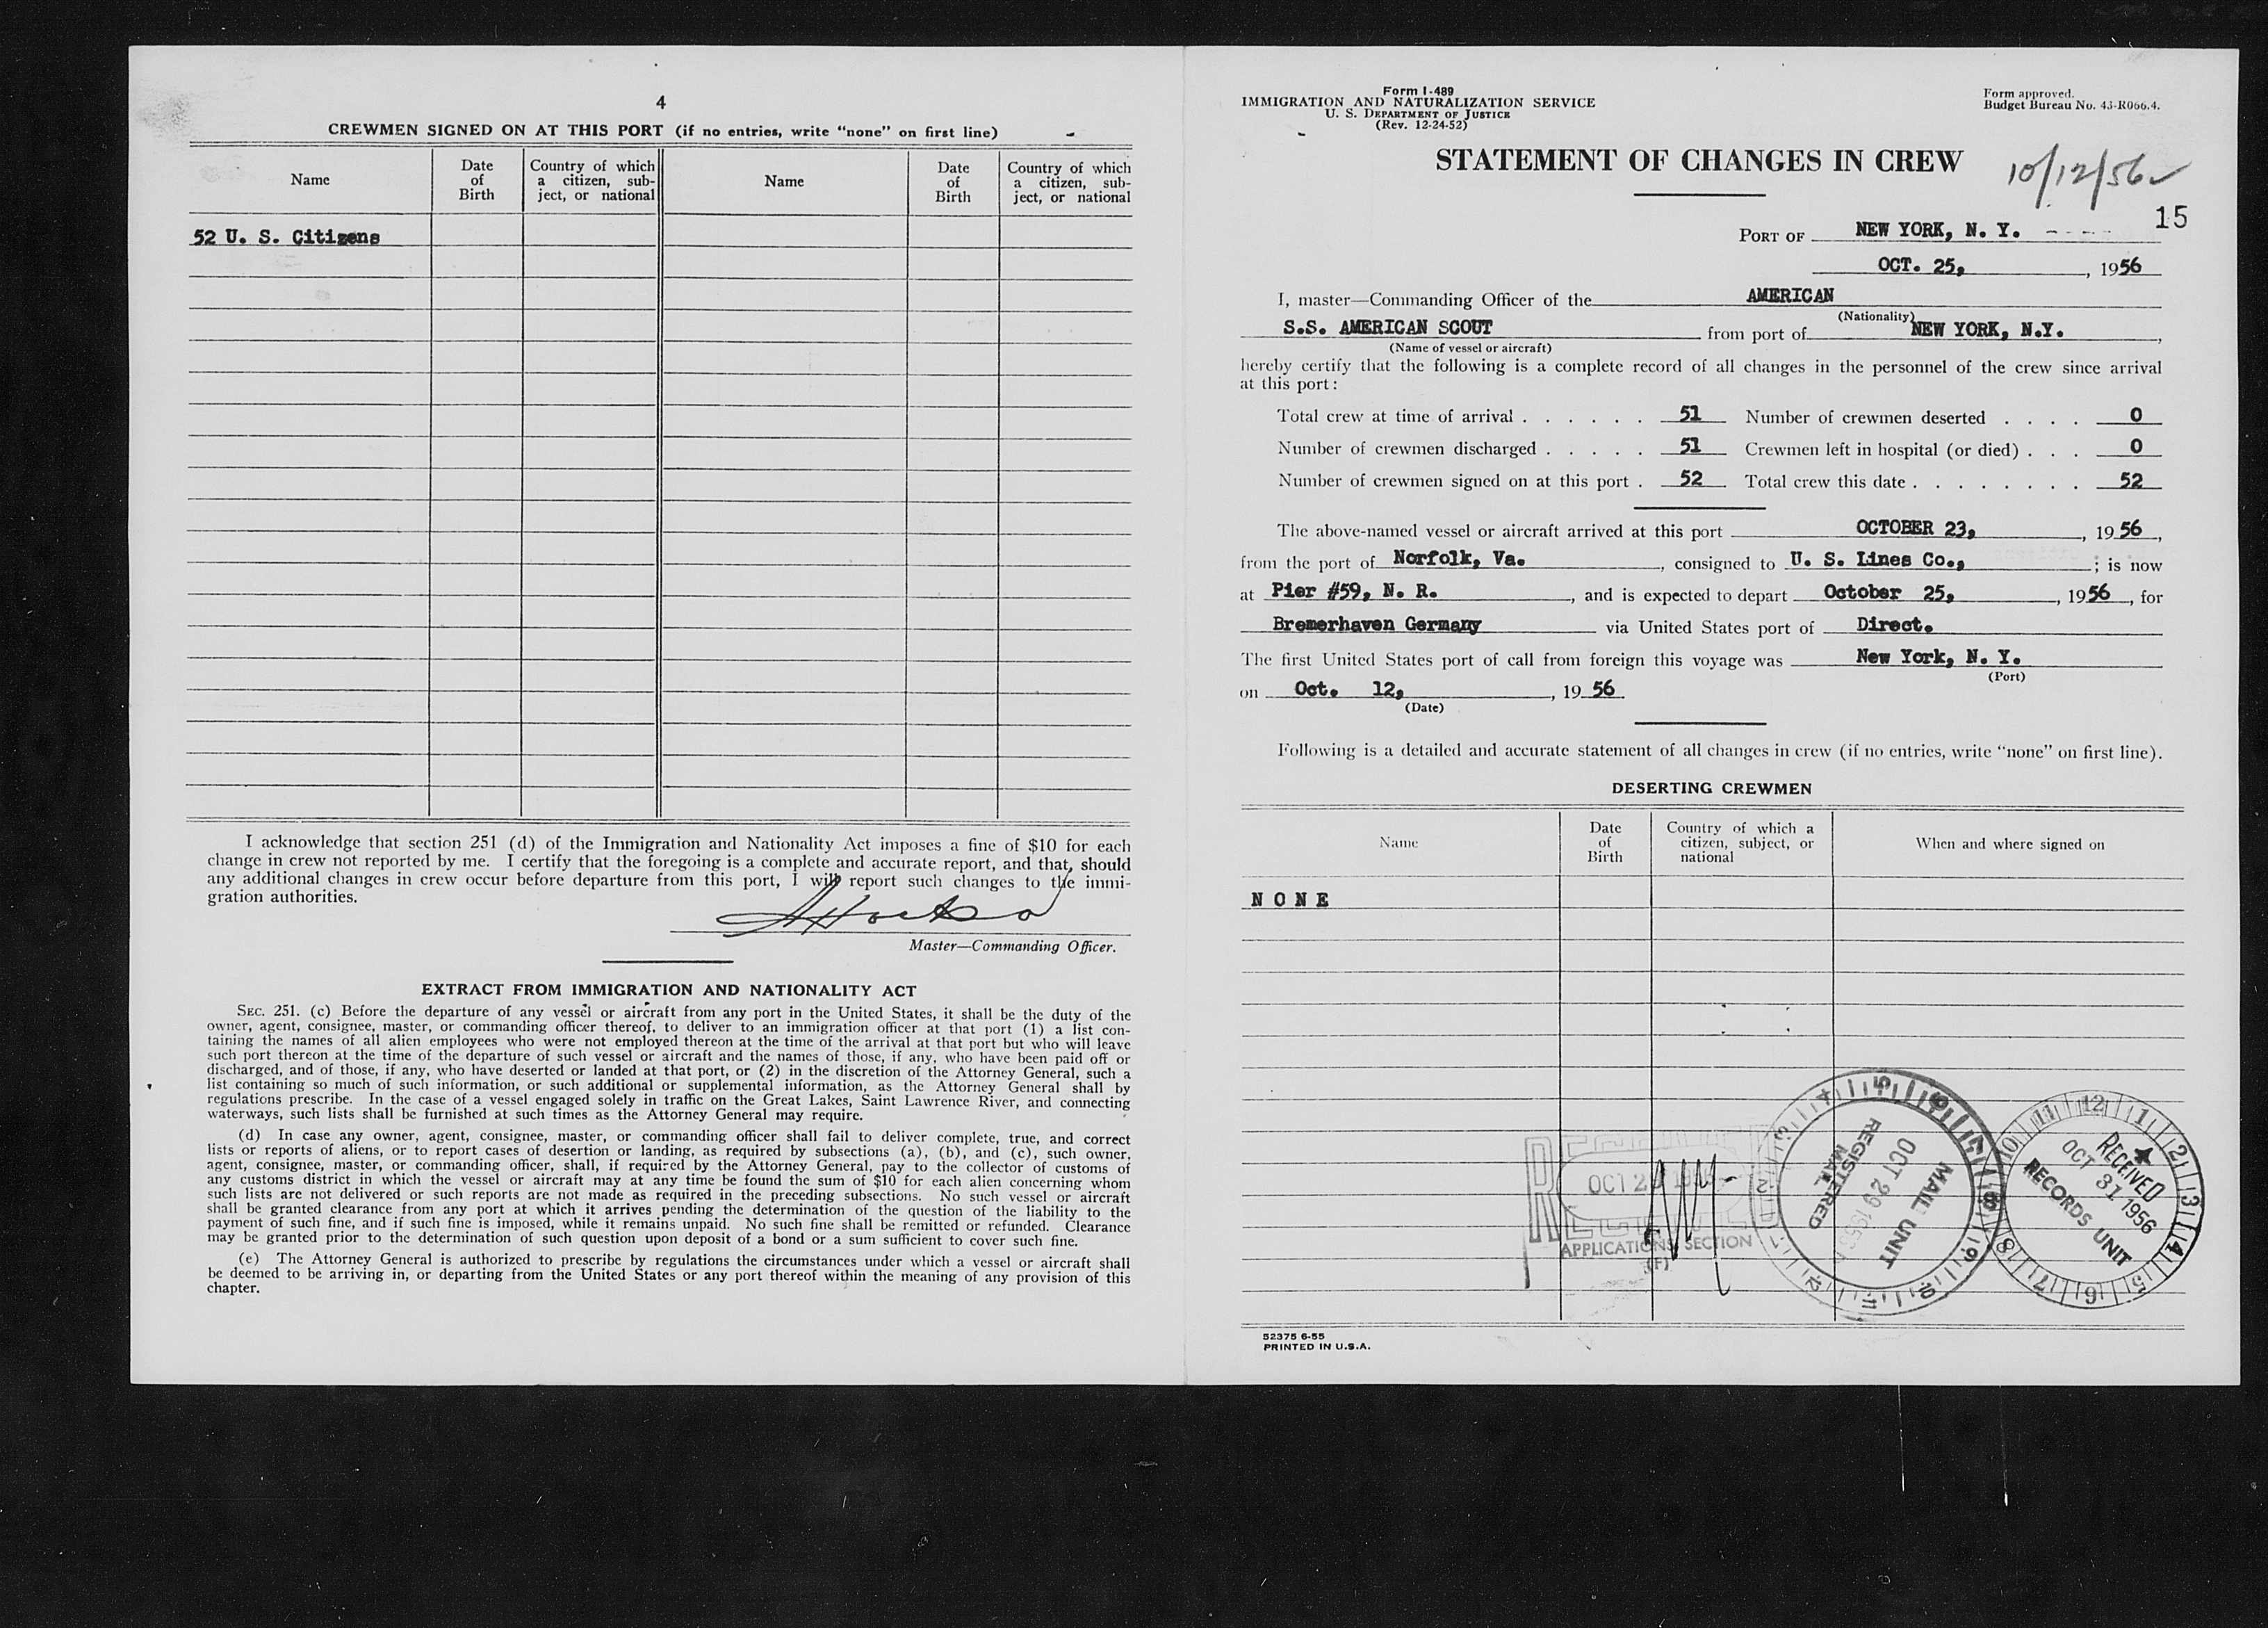 4
CREWMEN SIGNED ON AT THIS PORT (if no entries, write "none" on first line)
Name
Date of Birth
Country of which a citizen, sub-ject, or national
Name
Date of Birth
Country of which a citizen, sub-ject, or national
52 U. S. Citizens
I acknowledge that section 251 (d) of the Immigration and Nationality Act imposes a fine of $10 for each
change in crew not reported by me. I certify that the foregoing is a complete and accurate report, and that, should
any additional changes in crew occur before departure from this port, I will report such changes to the immi-
gration authorities.
Master—Commanding Officer.
EXTRACT FROM IMMIGRATION AND NATIONALITY ACT
SEC. 251. (c) Before the departure of any vessel or aircraft from any port in the United States, it shall be the duty of the
owner, agent, consignee, master, or commanding officer thereof, to deliver to an immigration officer at that port (1) a list con-
taining the names of all alien employees who were not employed thereon at the time of the arrival at that port but who will leave
such port thereon at the time of the departure of such vessel or aircraft and the names of those, if any, who have been paid off or
discharged, and of those, if any, who have deserted or landed at that port, or (2) in the discretion of the Attorney General, such a
list containing so much of such information, or such additional or supplemental information, as the Attorney General shall by
regulations prescribe. In the case of a vessel engaged solely in traffic on the Great Lakes, Saint Lawrence River, and connecting
waterways, such lists shall be furnished at such times as the Attorney General may require.
(d) In case any owner, agent, consignee, master, or commanding officer shall fail to deliver complete, true, and correct
lists or reports of aliens, or to report cases of desertion or landing, as required by subsections (a), (b), and (c), such owner,
agent, consignee, master, or commanding officer, shall, if required by the Attorney General, pay to the collector of customs of
any customs district in which the vessel or aircraft may at any time be found the sum of $10 for each alien concerning whom
such lists are not delivered or such reports are not made as required in the preceding subsections. No such vessel or aircraft
shall be granted clearance from any port at which it arrives pending the determination of the question of the liability to the
payment of such fine, and if such fine is imposed, while it remains unpaid. No such fine shall be remitted or refunded. Clearance
may be granted prior to the determination of such question upon deposit of a bond or a sum sufficient to cover such fine.
(e) The Attorney General is authorized to prescribe by regulations the circumstances under which a vessel or aircraft shall
be deemed to be arriving in, or departing from the United States or any port thereof within the meaning of any provision of this
chapter.
Form I-489
IMMIGRATION AND NATURALIZATION SERVICE
U. S. DEPARTMENT OF JUSTICE
(Rev. 12-24-52)
Form approved.
Budget Bureau No. 43-R066.4.
STATEMENT OF CHANGES IN CREW
10/12/56
15
PORT OF NEW YORK, N. Y.
OCT. 25, , 1956
I, master—Commanding Officer of the AMERICAN
(Nationality)
S.S. AMERICAN SCOUT from port of NEW YORK, N.Y. ,
(Name of vessel or aircraft)
hereby certify that the following is a complete record of all changes in the personnel of the crew since arrival
at this port:
Total crew at time of arrival . . . . . . 51 Number of crewmen deserted . . . . 0
Number of crewmen discharged . . . . . 51 Crewmen left in hospital (or died) . . . 0
Number of crewmen signed on at this port . 52 Total crew this date . . . . . . . . 52
The above-named vessel or aircraft arrived at this port OCTOBER 23, , 1956,
from the port of Norfolk, Va. , consigned to U. S. Lines Co., ; is now
at Pier #59, N. R. , and is expected to depart October 25, , 1956, for
Bremerhaven Germany via United States port of Direct.
The first United States port of call from foreign this voyage was New York, N. Y.
(Port)
on Oct. 12, , 1956
(Date)
Following is a detailed and accurate statement of all changes in crew (if no entries, write "none" on first line).
DESERTING CREWMEN
Name
Date of Birth
Country of which a citizen, subject, or national
When and where signed on
N O N E
RECEIVED
APPLICATIONS SECTION
(F)
REGISTERED MAIL
OCT 29 1956
MAIL UNIT
RECEIVED
OCT 31 1956
RECORDS UNIT
52375 6-55
PRINTED IN U.S.A.